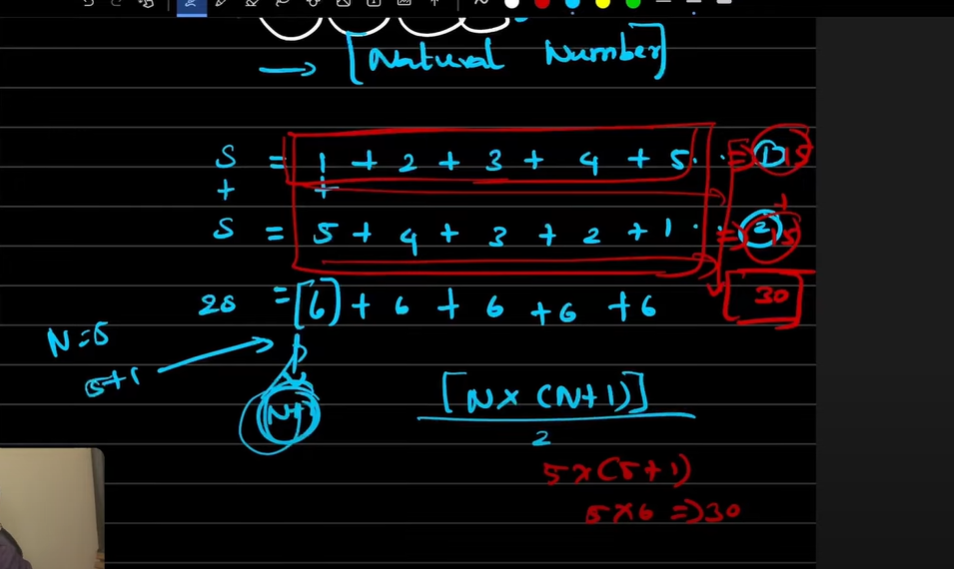 → [Natural Number]
S = 1 + 2 + 3 + 4 + 5 . . ⇒ ① 15
+ + +
S = 5 + 4 + 3 + 2 + 1 . . ⇒ ② 15
2S = [6) + 6 + 6 + 6 + 6 30
N=5
5+1
N+1
[N x (N+1)]
2
5x(5+1)
5x6 ⇒ 30